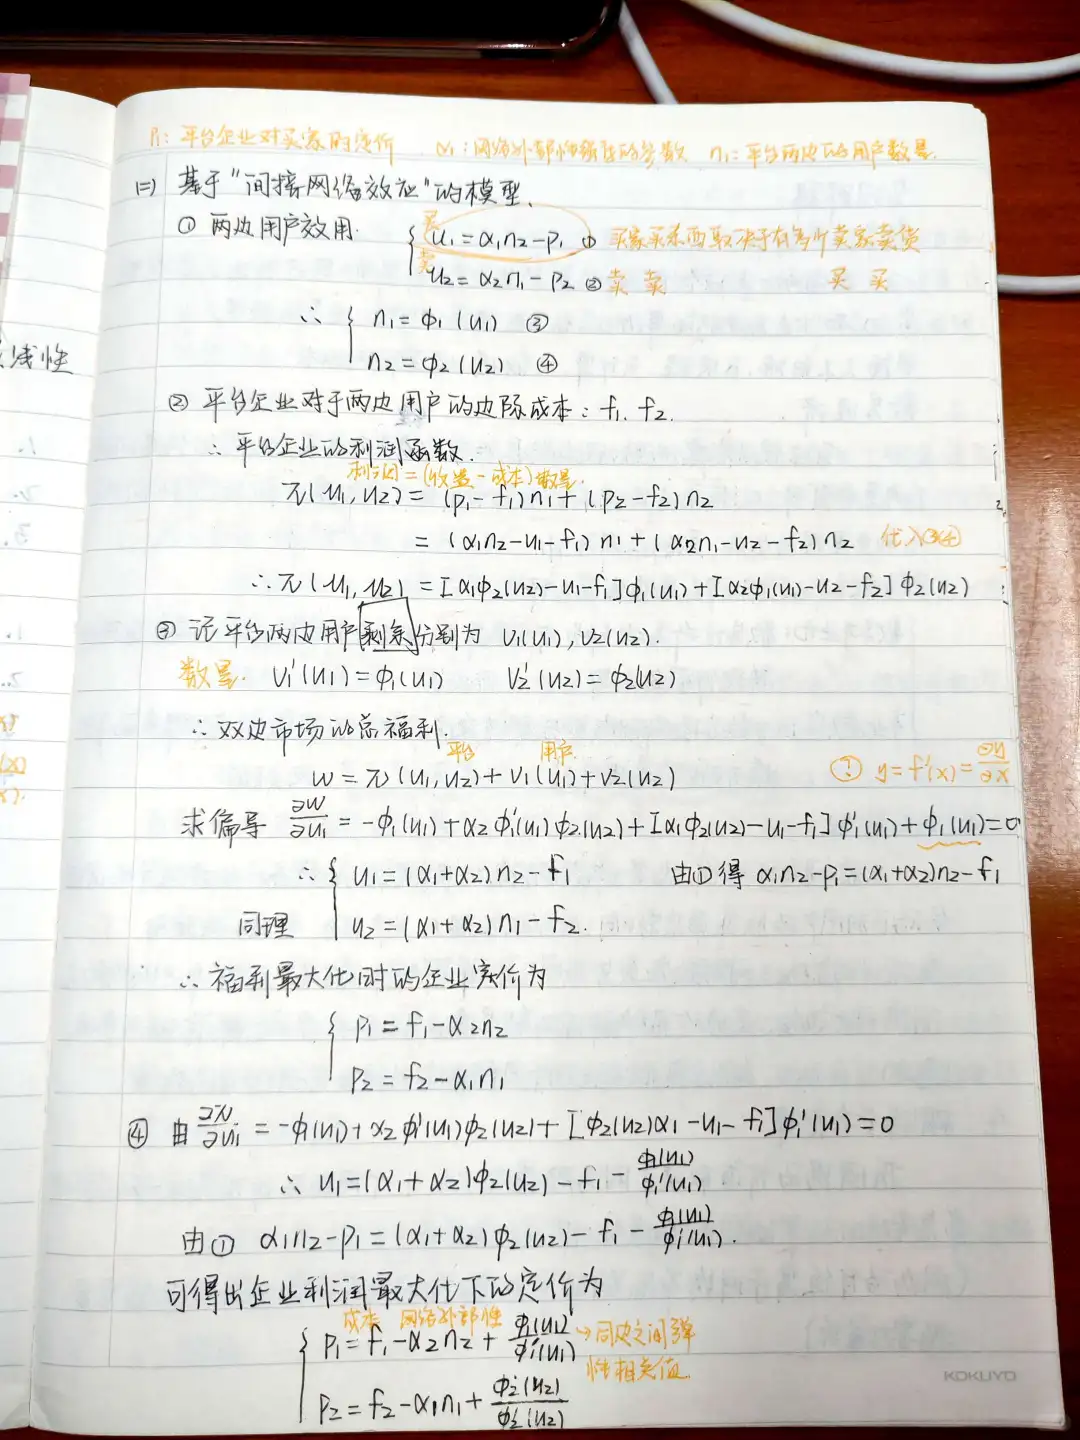 P₁: 平台企业对买家的定价 α₁: 网络外部性强度的参数 n₁: 平台两边的用户数量
(二) 基于"间接网络效应"的模型.
① 两边用户效用.
买 u₁=α₁n₂-p₁ ① 买家买东西取决于有多少卖家卖货
卖 u₂=α₂n₁-p₂ ② 卖 卖 买 买
∴ { n₁=ϕ₁(u₁) ③
n₂=ϕ₂(u₂) ④
② 平台企业对于两边用户的边际成本: f₁、f₂.
∴ 平台企业的利润函数.
利润=(收益-成本)数量.
π(u₁,u₂)=(p₁-f₁)n₁+(p₂-f₂)n₂
=(α₁n₂-u₁-f₁)n₁+(α₂n₁-u₂-f₂)n₂ 代入③④
∴ π(u₁,u₂)=[α₁ϕ₂(u₂)-u₁-f₁]ϕ₁(u₁)+[α₂ϕ₁(u₁)-u₂-f₂]ϕ₂(u₂)
③ 记平台两边用户剩余分别为 V₁(u₁),V₂(u₂).
数量. V₁'(u₁)=ϕ₁(u₁) V₂'(u₂)=ϕ₂(u₂)
∴ 双边市场的总福利.
平台 用户
W=π(u₁,u₂)+V₁(u₁)+V₂(u₂) ? y=f'(x)=∂y/∂x
求偏导 ∂W/∂u₁=-ϕ₁(u₁)+α₂ϕ₁'(u₁)ϕ₂(u₂)+[α₁ϕ₂(u₂)-u₁-f₁]ϕ₁'(u₁)+ϕ₁(u₁)=0
∴ { u₁=(α₁+α₂)n₂-f₁ 由①得 α₁n₂-p₁=(α₁+α₂)n₂-f₁
同理 u₂=(α₁+α₂)n₁-f₂.
∴ 福利最大化时的企业定价为
{ p₁=f₁-α₂n₂
p₂=f₂-α₁n₁
④ 由 ∂π/∂u₁=-ϕ₁(u₁)+α₂ϕ₁'(u₁)ϕ₂(u₂)+[ϕ₂(u₂)α₁-u₁-f₁]ϕ₁'(u₁)=0
∴ u₁=(α₁+α₂)ϕ₂(u₂)-f₁-ϕ₁(u₁)/ϕ₁'(u₁)
由① α₁n₂-p₁=(α₁+α₂)ϕ₂(u₂)-f₁-ϕ₁(u₁)/ϕ₁'(u₁).
可得出企业利润最大化下的定价为
成本 网络外部性
{ p₁=f₁-α₂n₂+ϕ₁(u₁)/ϕ₁'(u₁) →同边之间弹
性相关值.
p₂=f₂-α₁n₁+ϕ₂(u₂)/ϕ₂'(u₂)
线性
KOKUYO